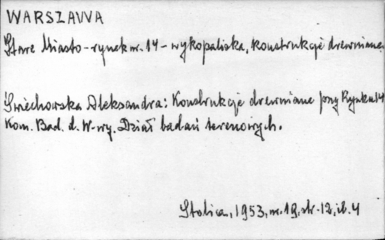 WARSZAWA
Stare Miasto - rynek nr. 14 - wykopaliska, konstrukcje drewniane.
Świechowska Aleksandra: Konstrukcje drewniane przy Rynku 14
Kom. Bad. d. W-wy. Dział badań terenowych.
Stolica, 1953, nr. 19, str. 12, il. 4